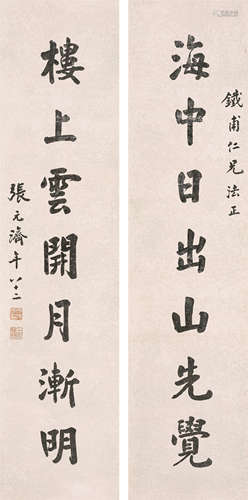 鐵甫仁兄法正
海中日出山先覺
樓上雲開月漸明
張元濟年八十二